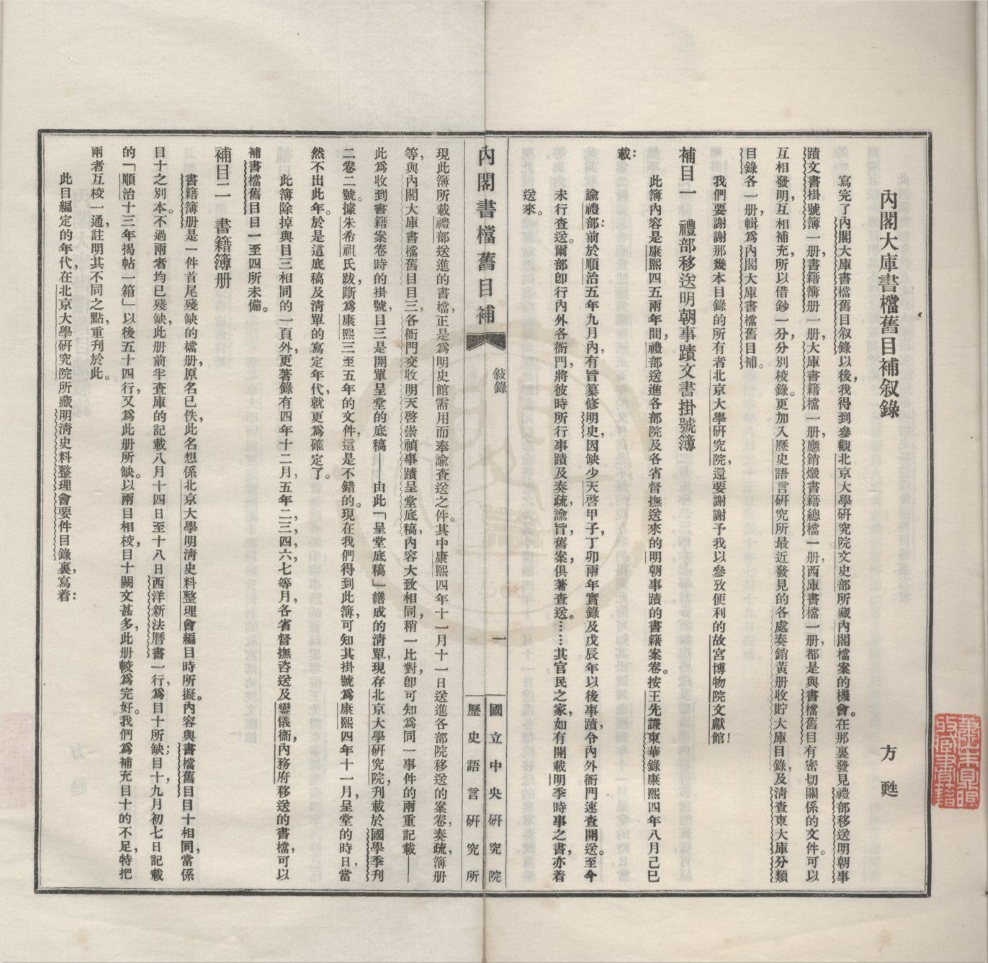 內閣大庫書檔舊目補叙錄
方甦
寫完了內閣大庫書檔舊目叙錄以後，我得到參觀北京大學研究院文史部所藏內閣檔案的機會。在那裏發見禮部移送明朝事
蹟文書掛號簿一册，書籍簿册一册，大庫書籍檔一册，應銷燬書籍總檔一册，西庫書檔一册，都是與書檔舊目有密切關係的文件。可以
互相發明，互相補充，所以借鈔一分，分別梭錄。更加入歷史語言研究所最近發見的各處奏銷黃册收貯大庫目錄及清查東大庫分類
目錄各一册，輯爲內閣大庫書檔舊目補。
我們要謝謝那幾本目錄的所有者北京大學研究院，還要謝謝予我以參攷便利的故宮博物院文獻館！
補目一　禮部移送明朝事蹟文書掛號簿
此簿內容是康熙四五兩年間，禮部送進各部院及各省督撫送來的明朝事蹟的書籍案卷。按王先謙東華錄康熙四年八月己巳
載：
諭禮部：前於順治五年九月內，有旨纂修明史，因缺少天啓甲子丁卯兩年實錄及戊辰年以後事蹟，令內外衙門速查開送。至今
未行查送。爾部卽行內外各衙門，將彼時所行事蹟及奏疏，諭旨舊案，俱著查送。……其官民之家，如有開載明季時事之書，亦着
送來。
內閣書檔舊目補
敍錄
一
國立中央研究院
歷史語言研究所
現此簿所載禮部送進的書檔，正是爲明史館需用而奉諭查送之件。其中康熙四年十一月十一日送進各部院移送的案卷，奏疏，簿册
等，與內閣大庫書檔舊目目三各衙門交收明天啓崇禎事蹟呈堂底稿，內容大致相同，稍一比對，卽可知爲同一事件的兩重記載——
此爲收到書籍案卷時的掛號，目三是開單呈堂的底稿——由此「呈堂底稿」繕成的清單，現存北京大學研究院，刋載於國學季刋
二卷二號。據朱希祖氏跋，斷爲康熙三至五年的文件，這是不錯的。現在我們得到此簿，可知其掛號爲康熙四年十一月，呈堂的時日，當
然不出此年。於是這底稿及清單的寫定年代，就更爲確定了。
此簿除掉與目三相同的一頁外，更著錄有四年十二月，五年二，三，四，六，七等月，各省督撫咨送及鑾儀衞，內務府移送的書檔，可以
補書檔舊目目一至四所未備。
補目二　書籍簿册
書籍簿册是一件首尾殘缺的檔册，原名已佚，此名想係北京大學明清史料整理會編目時所擬。內容與書檔舊目目十相同，當係
目十之別本。不過兩者均已殘缺，此册前半查庫的記載八月十四日至十八日西洋新法曆書一行，爲目十所缺；目十九月初七日記載
的「順治十三年揭帖一箱」以後五十四行，又爲此册所缺。以兩目相校，目十闕文甚多，此册較爲完好。我們爲補充目十的不足，特把
兩者互校一通，註明其不同之點，重刋於此。
此目編定的年代，在北京大學研究院所藏明清史料整理會要件目錄裏，寫着：